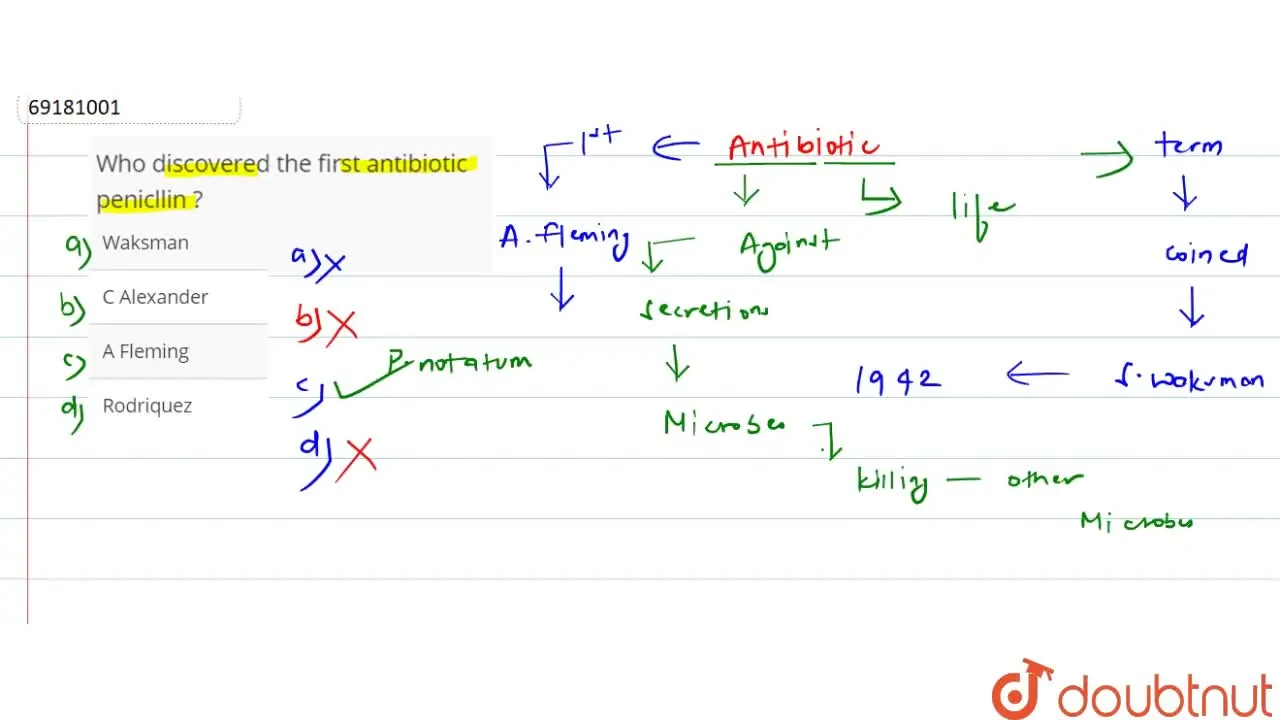 69181001
Who discovered the first antibiotic
penicllin ?
a) Waksman
b) C Alexander
c) A Fleming
d) Rodriquez
a) X
b) X
c) ✓ P. notatum
d) X
1st ← Antibiotic → term
A. Fleming
Against
life
coined
secretions
1942 ← S. Waksman
Microbes
killing — other
Microbes
doubtnut